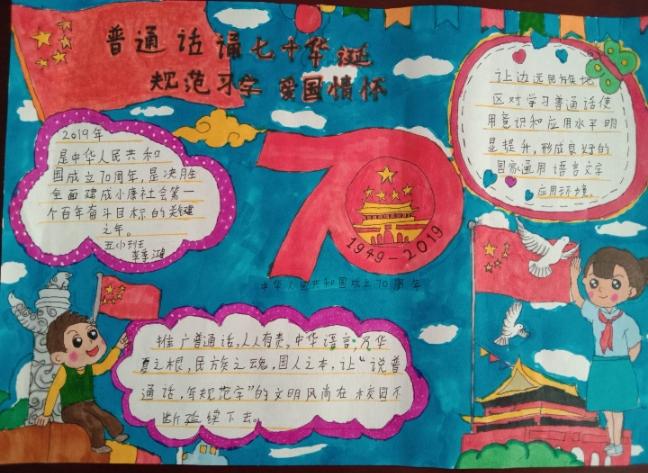 普通话诵七十华诞
规范习字 爱国情怀
2019年
是中华人民共和
国成立70周年，是决胜
全面建成小康社会第一
个百年奋斗目标的关键
之年。
五小班
70
1949-2019
中华人民共和国成立70周年
让边远民族地
区对学习普通话使
用意识和应用水平明
显提升，形成良好的
国家通用语言文字
应用环境。
推广普通话，人人有责，中华语言，乃华
夏之根，民族之魂，国人之本，让“说普
通话，写规范字”的文明风尚在校园不
断延续下去。